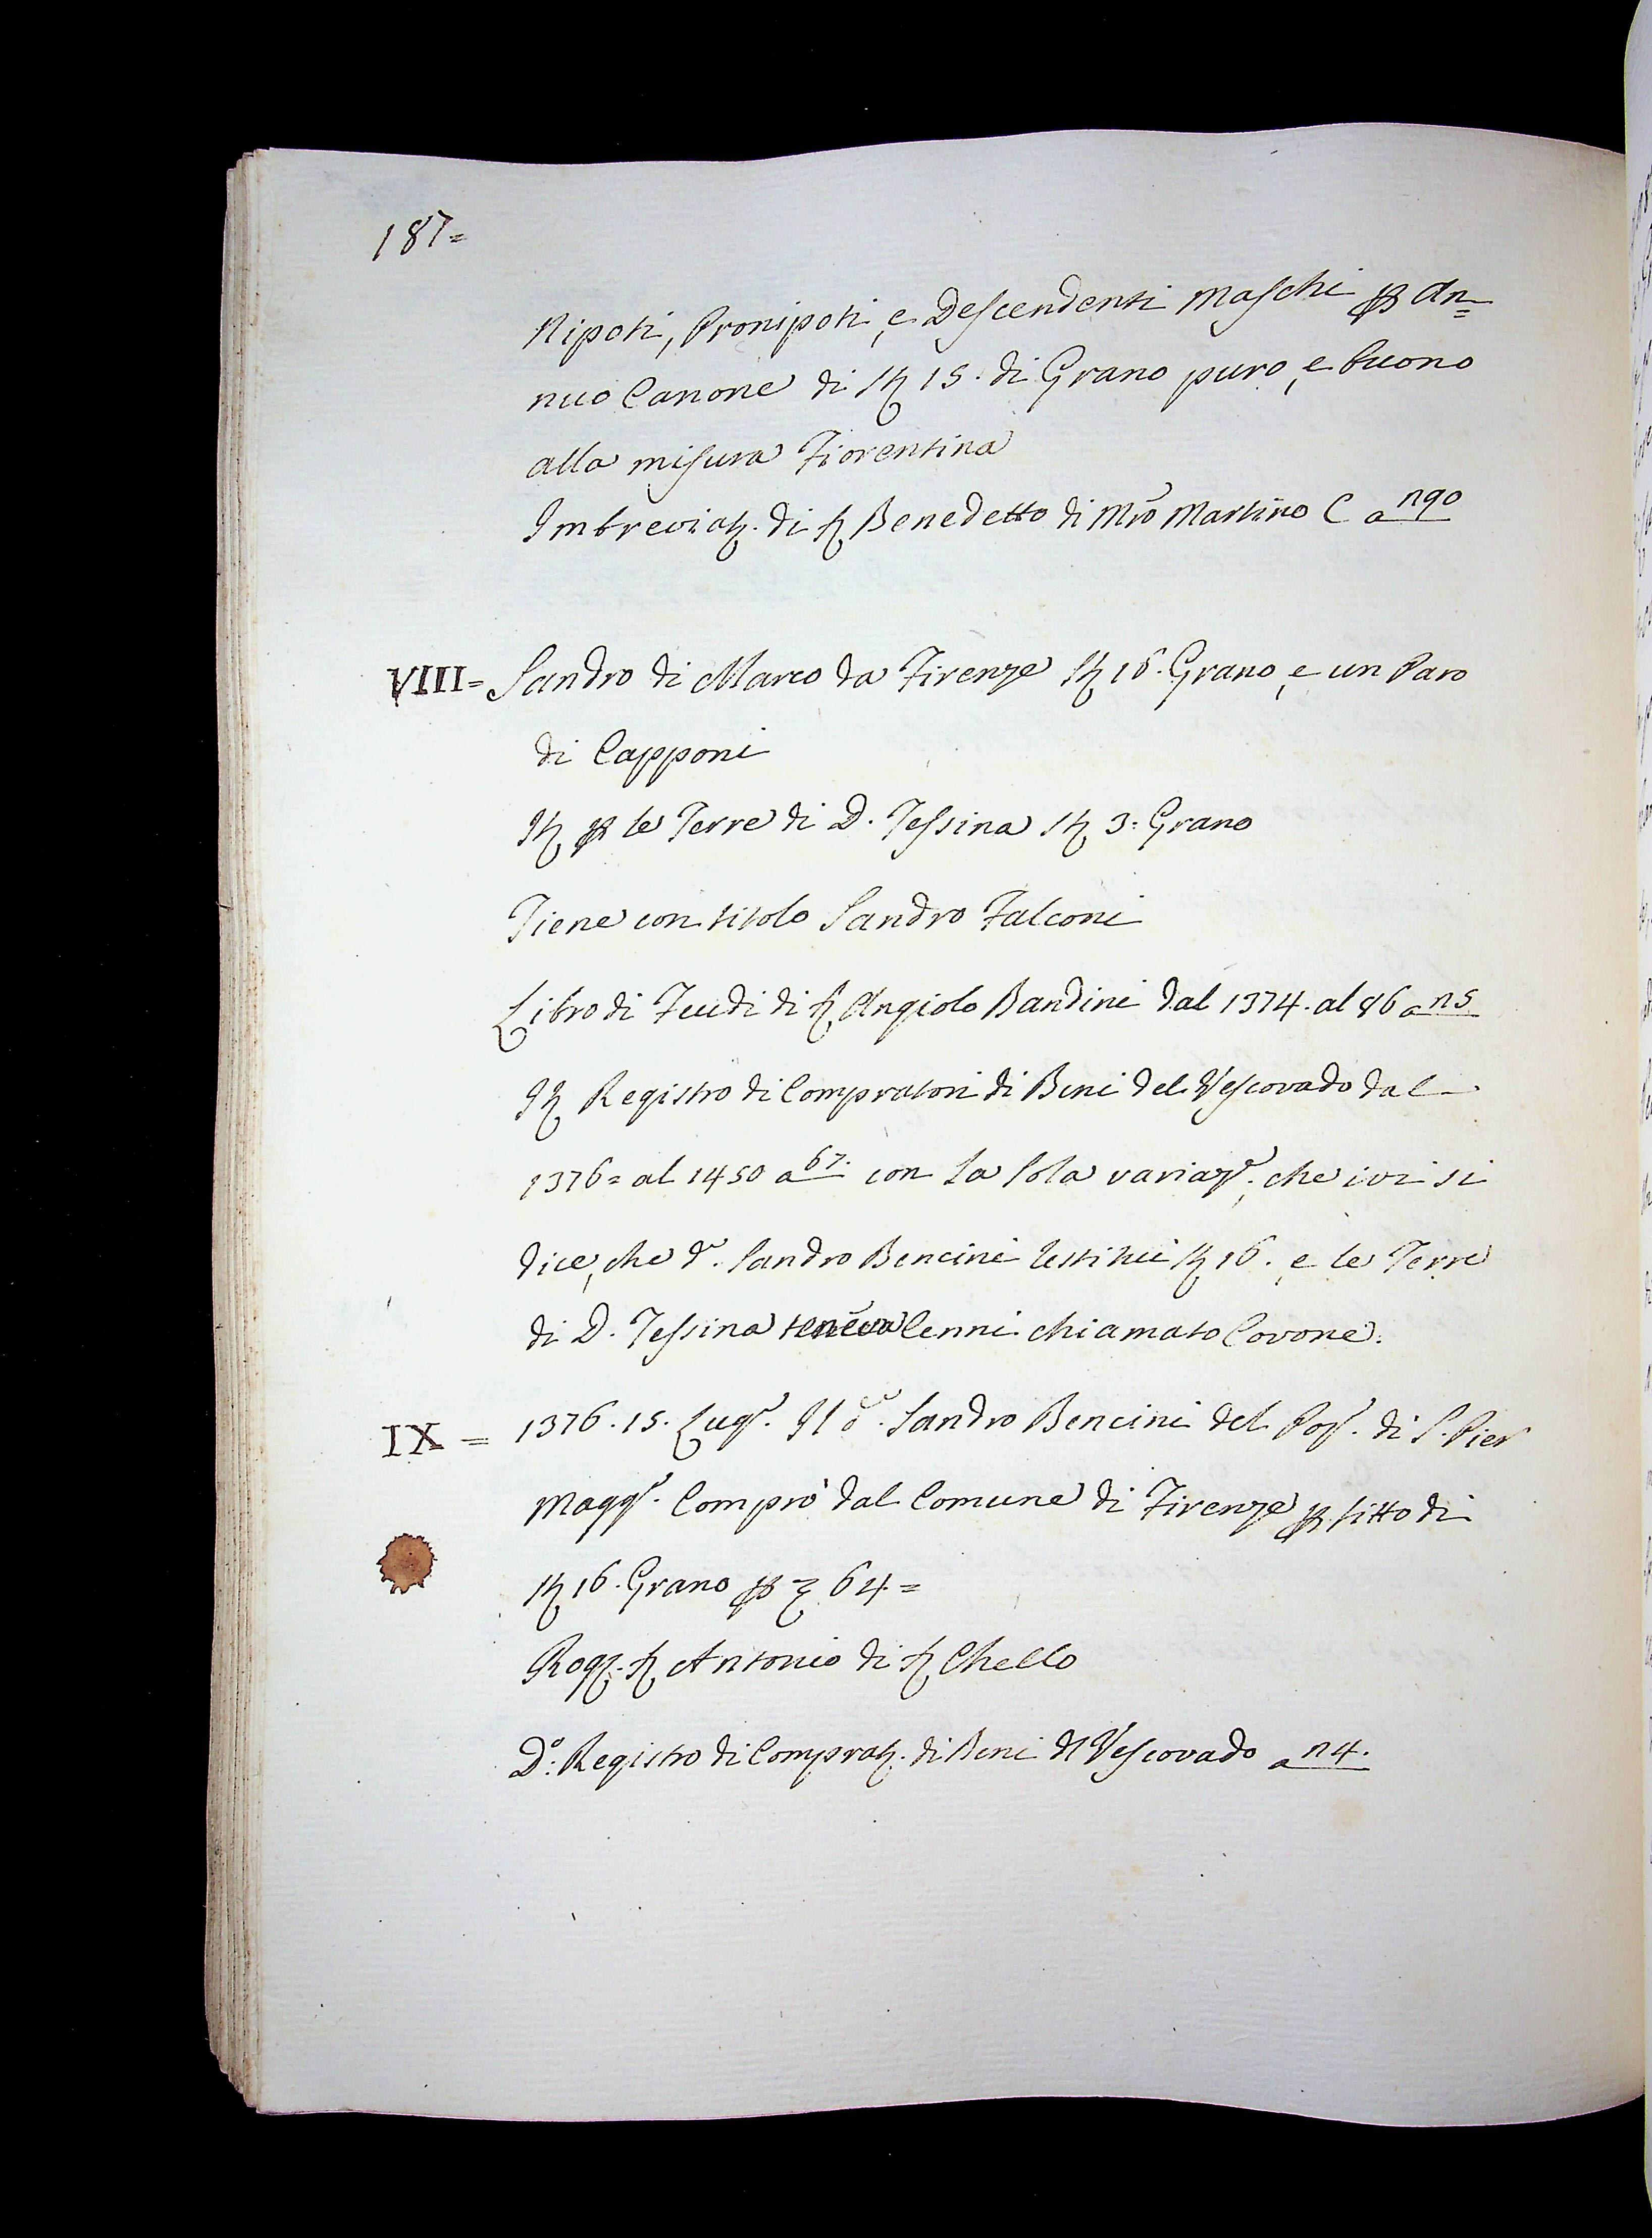 187=
Nipoti, Pronipoti, e Descendenti Maschi per An=
nuo Canone di st 15. di Grano puro, e buono
alla misura Fiorentina
Imbreviat. di s Benedetto di Mro Martino C a n90
VIII= Sandro di Marco da Firenze st 16. Grano, e un Paro
di Capponi
It per le Terre di D. Tessina st 3: Grano
Tiene con titolo Sandro Falconi
Libro di Feudi di s Angiolo Bandini dal 1374. al 86 a n5
It Registro di Compratori di Beni del Vescovado dal
1376= al 1450 a 67. con la sola variaze. che ivi si
dice, che do. Sandro Bencini restituì st 16. e le Terre
di D. Tessina teneva Cenni chiamato Covone.
IX= 1376. 15. Lugo. Il do. Sandro Bencini del Popo. di S. Pier
Maggre. Comprò dal Comune di Firenze per fitto di
st 16. Grano per 64=
Rog. s Antonio di s Chello
Do: Registro di Comprat. di Beni del Vescovado a n4.